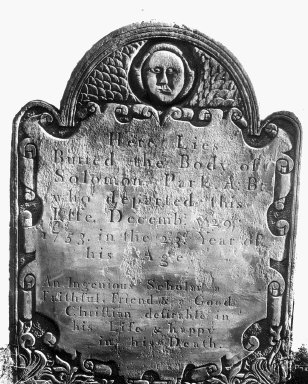 Here Lies
Buried the Body of
Solomon Park A. B.
who departed this
Life Decembr. 29
1753. in the 23d. Year of
his Age
An Ingenious Scholar a
Faithful Friend & a Good
Christian desirable in
his Life & happy
in his Death.